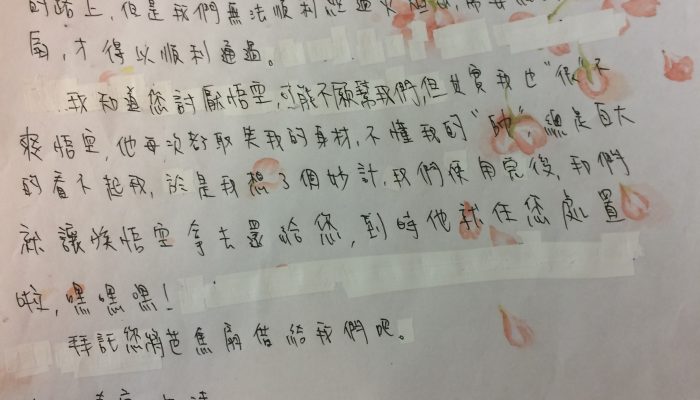 的路上,但是我們無法順利經過火
扇,才得以順利通過。
我知道您討厭悟空,可能不願幫我們,但其實我也“很”不
爽悟空,他每次都取笑我的身材,不懂我的“帥”,總是自大
的看不起我,於是我想了個妙計,我們使用完後,我們
就讓悟空拿去還給您,到時他就任您處置
啦,嘿嘿嘿!
拜託您將芭蕉扇借給我們吧。